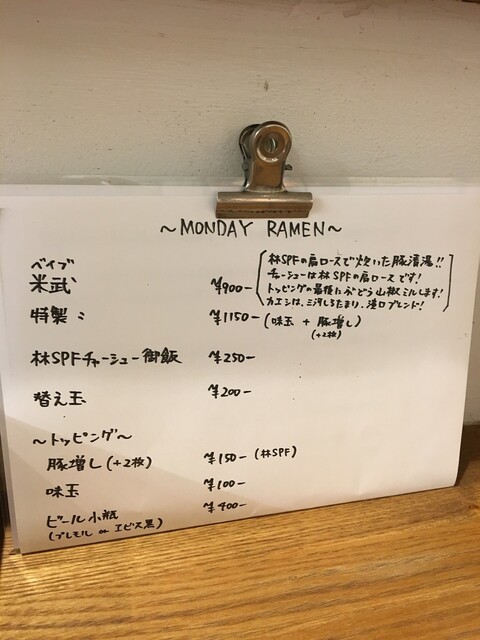 ～MONDAY RAMEN～
ベイブ
米武 ¥900-
(林SPFの肩ロースで炊いた豚清湯!!
チャーシューは林SPFの肩ロースです!
トッピングの最後にぶどう山椒ミルします!
カエシは、三河しろたまり、淡口ブレンド!)
特製〃 ¥1150- (味玉 + 豚増し)
(+2枚)
林SPFチャーシュー御飯 ¥250-
替え玉 ¥200-
～トッピング～
豚増し(+2枚) ¥150- (林SPF)
味玉 ¥100-
ビール小瓶 ¥400-
(プレモル or エビス黒)